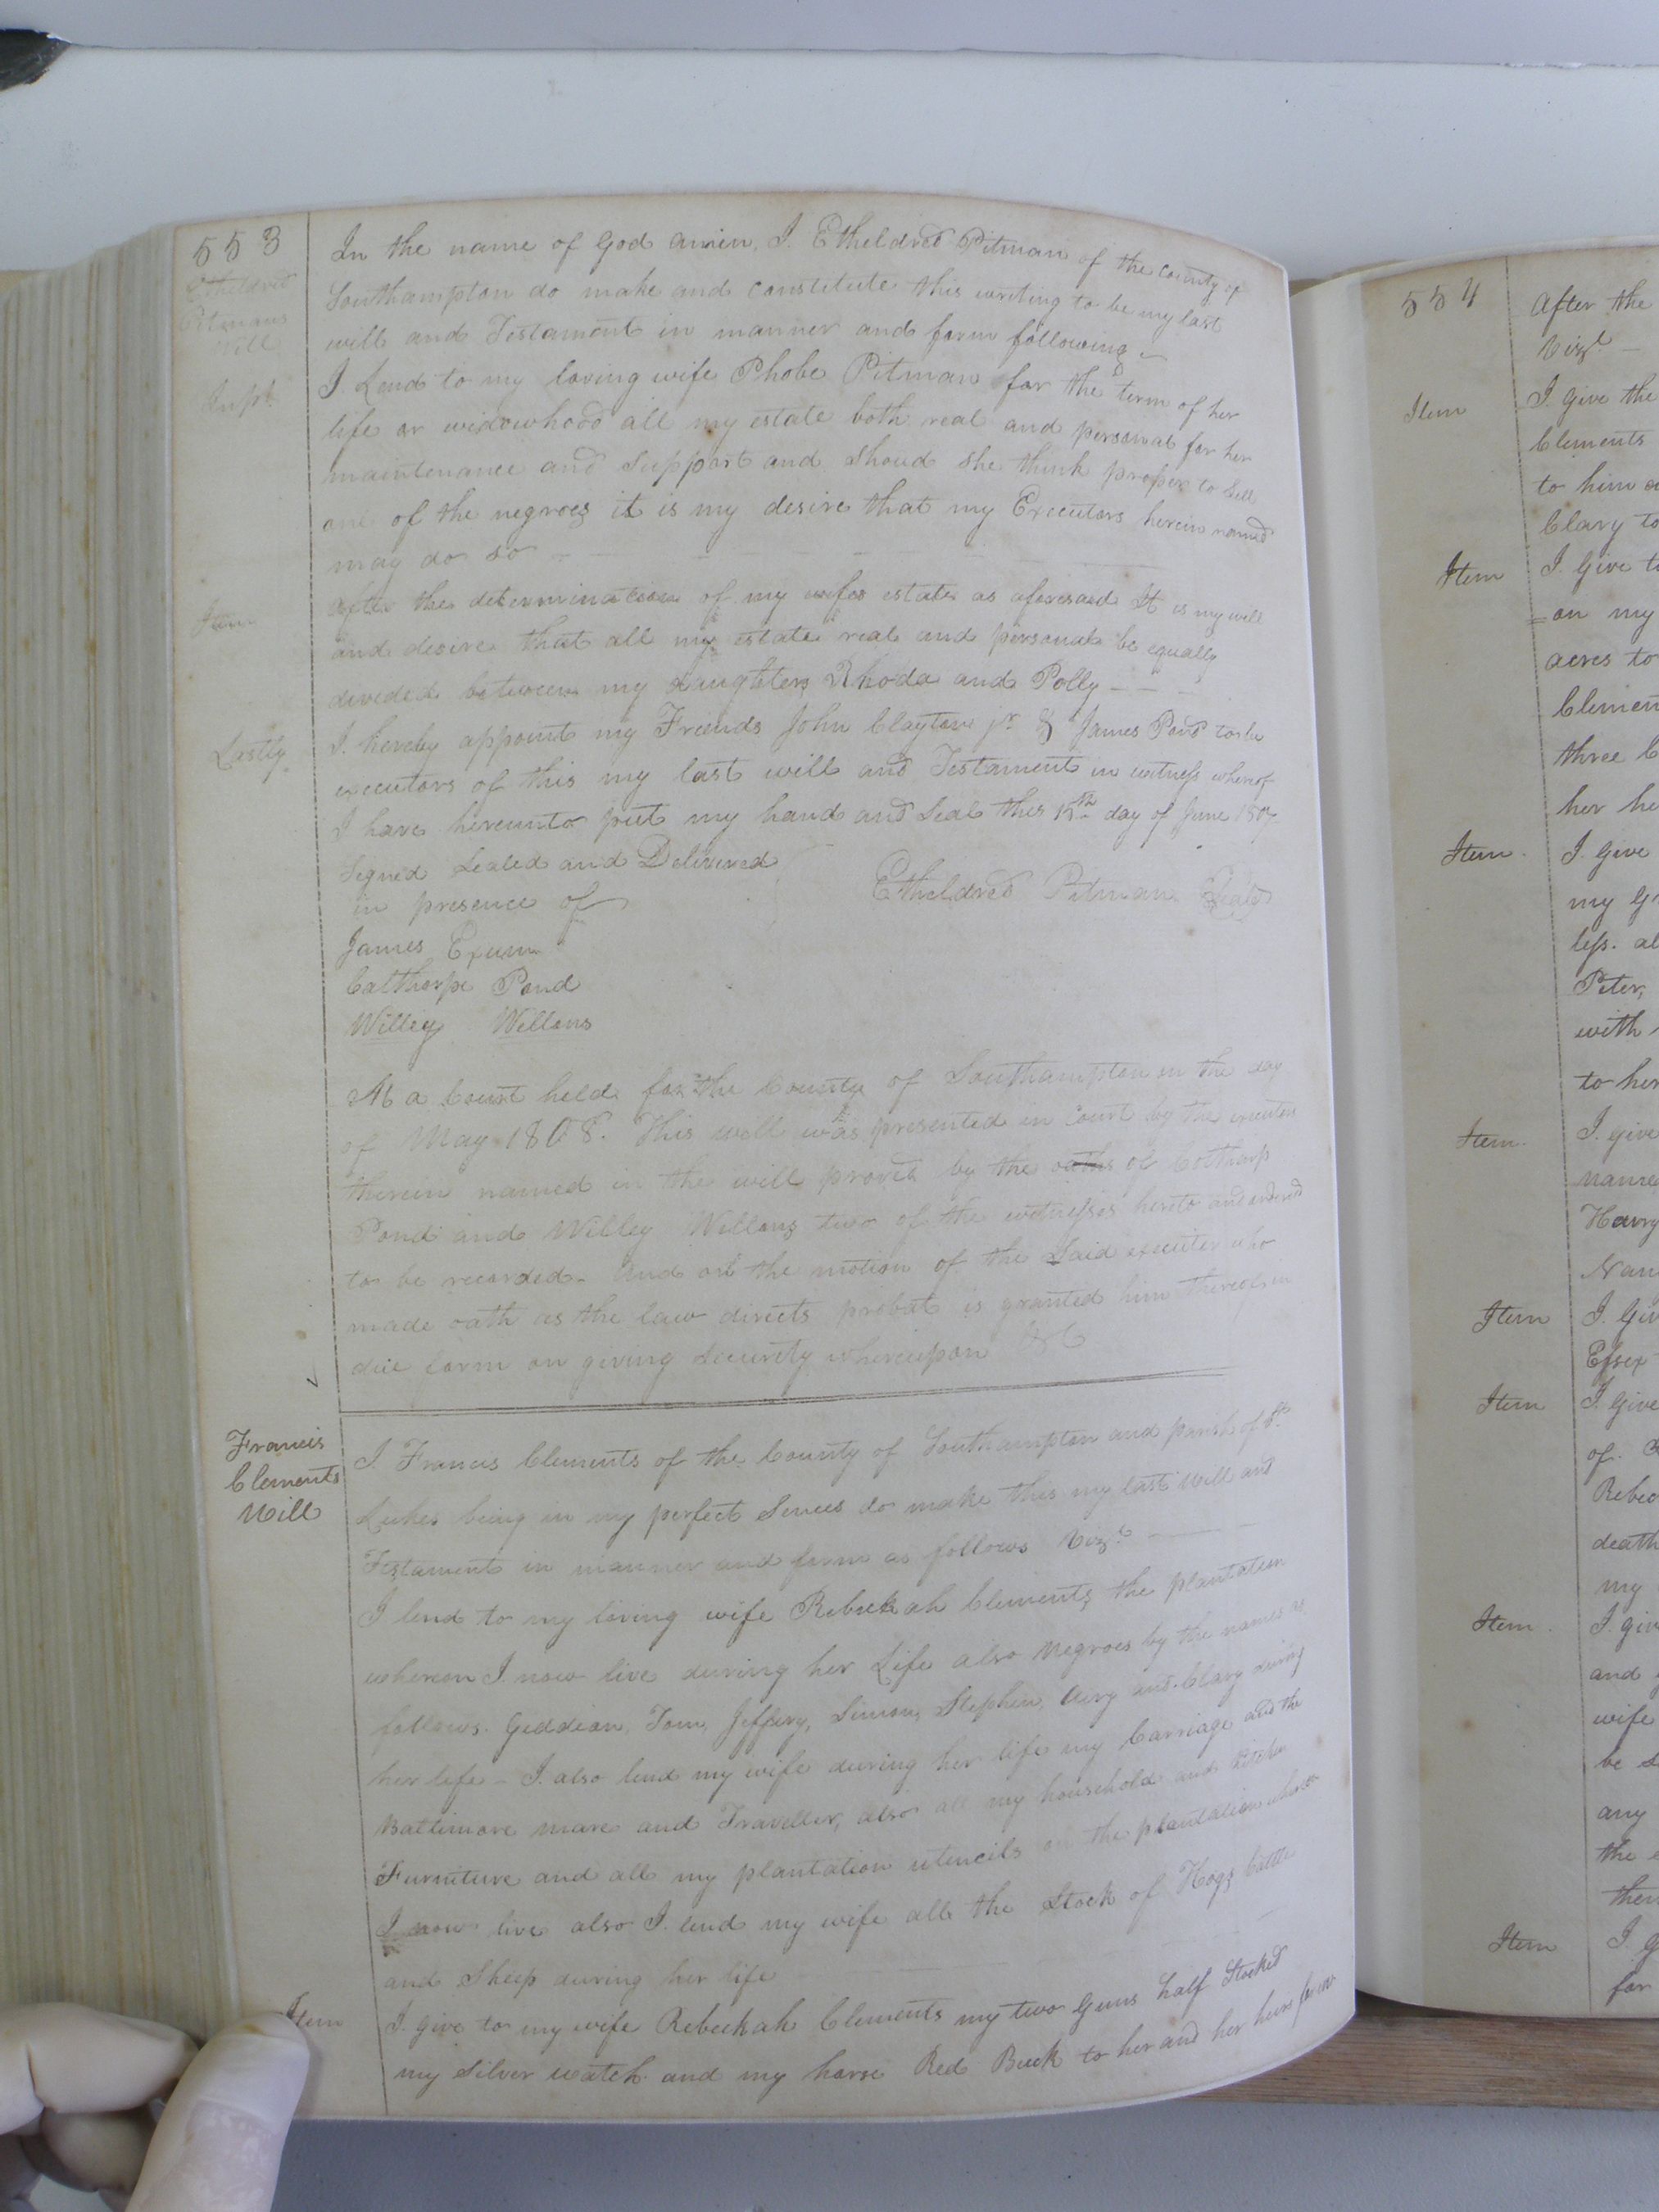 553
Etheldred
Pitmans
Will
In the name of God amen, I. Etheldred Pitman of the county of
Southampton do make and constitute this writing to be my last
will and Testament in manner and form following
Inpt.
I Lend to my loving wife Phobe Pitman for the term of her
life or widowhood all my estate both real and personal for her
maintenance and Support and Shoud She think proper to Sell
one of the negroes it is my desire that my Executors herein named
may do so
Item
After the determination of my wifes estate as aforesaid It is my will
and desire that all my estate real and personal be equally
divided between my daughters Rhoda and Polly
Lastly
I. hereby appoint my Freinds John Clayton jr & James Pond to be
executors of this my last will and Testament in witness whereof
I have hereunto put my hand and Seal this day of June 1807
Signed Sealed and Delivered
in presence of
Etheldred Pitman Seal
James Exum
Calthorpe Pond
Willey Wellons
At a Court held for the County of Southampton on the day
of May 1808. This will was presented in Court by the executor
therein named in the will proved by the oaths of Colthorp
Pond and Willey Wellons two of the witnesses hereto and ordered
to be recorded. And on the motion of the Said executer who
made oath as the law directs probat is granted him thereof in
due form on giving Security whereupon &C
Francis
Clements
Will
I. Francis Clements of the County of Southampton and parish of St.
Lukes being in my perfect Sences do make this my last Will and
Testament in manner and form as follows Vizt.
I lend to my loving wife Rebeckah Clements the plantation
whereon I now live during her Life also Negroes by the names as
follows. Giddion, Tom, Jeffery, Simon, Stephen, Airy and Clary during
her life - I. also lend my wife during her life my Carriage and the
Baltimore mare and Traveller, also all my household and Kitchen
Furniture and all my plantation utencils on the plantation whereon
I now live also I. lend my wife all the Stock of Hogs Cattle
and Sheep during her life
Item
I. give to my wife Rebeckah Clements my two Guns half Stocked
my Silver watch and my horse Red Buck to her and her heirs forever
554
After the
Vizt.
Item
I. give the
Clements
to him
Clary to
Item
I. Give
on my
acres to
three
her he
Item
I. Give
my
less. al
Peter,
with
to her
Item
I. give
name
Harry
Nan
Item
I. Giv
Essex
Item
I. Give
of.
Rebec
death
my
Item
I. giv
and
wife
be
any
the
then
Item
I.
for